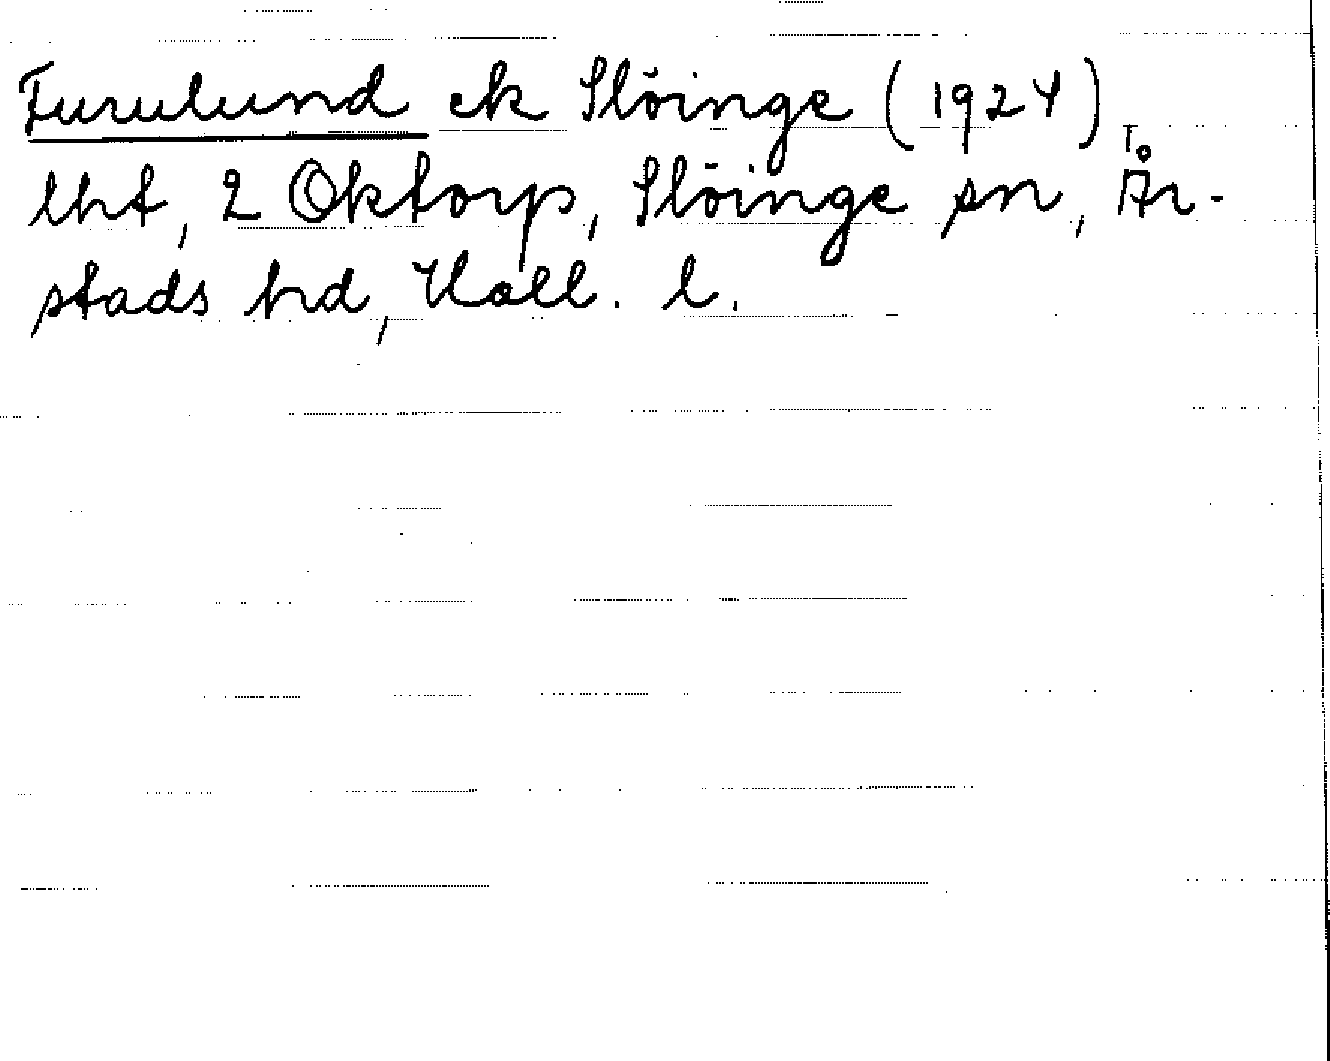 Furulund ek Slöinge (1924)
lht, 2 Oktorp, Slöinge sn, År-
stads hd, Hall. l.